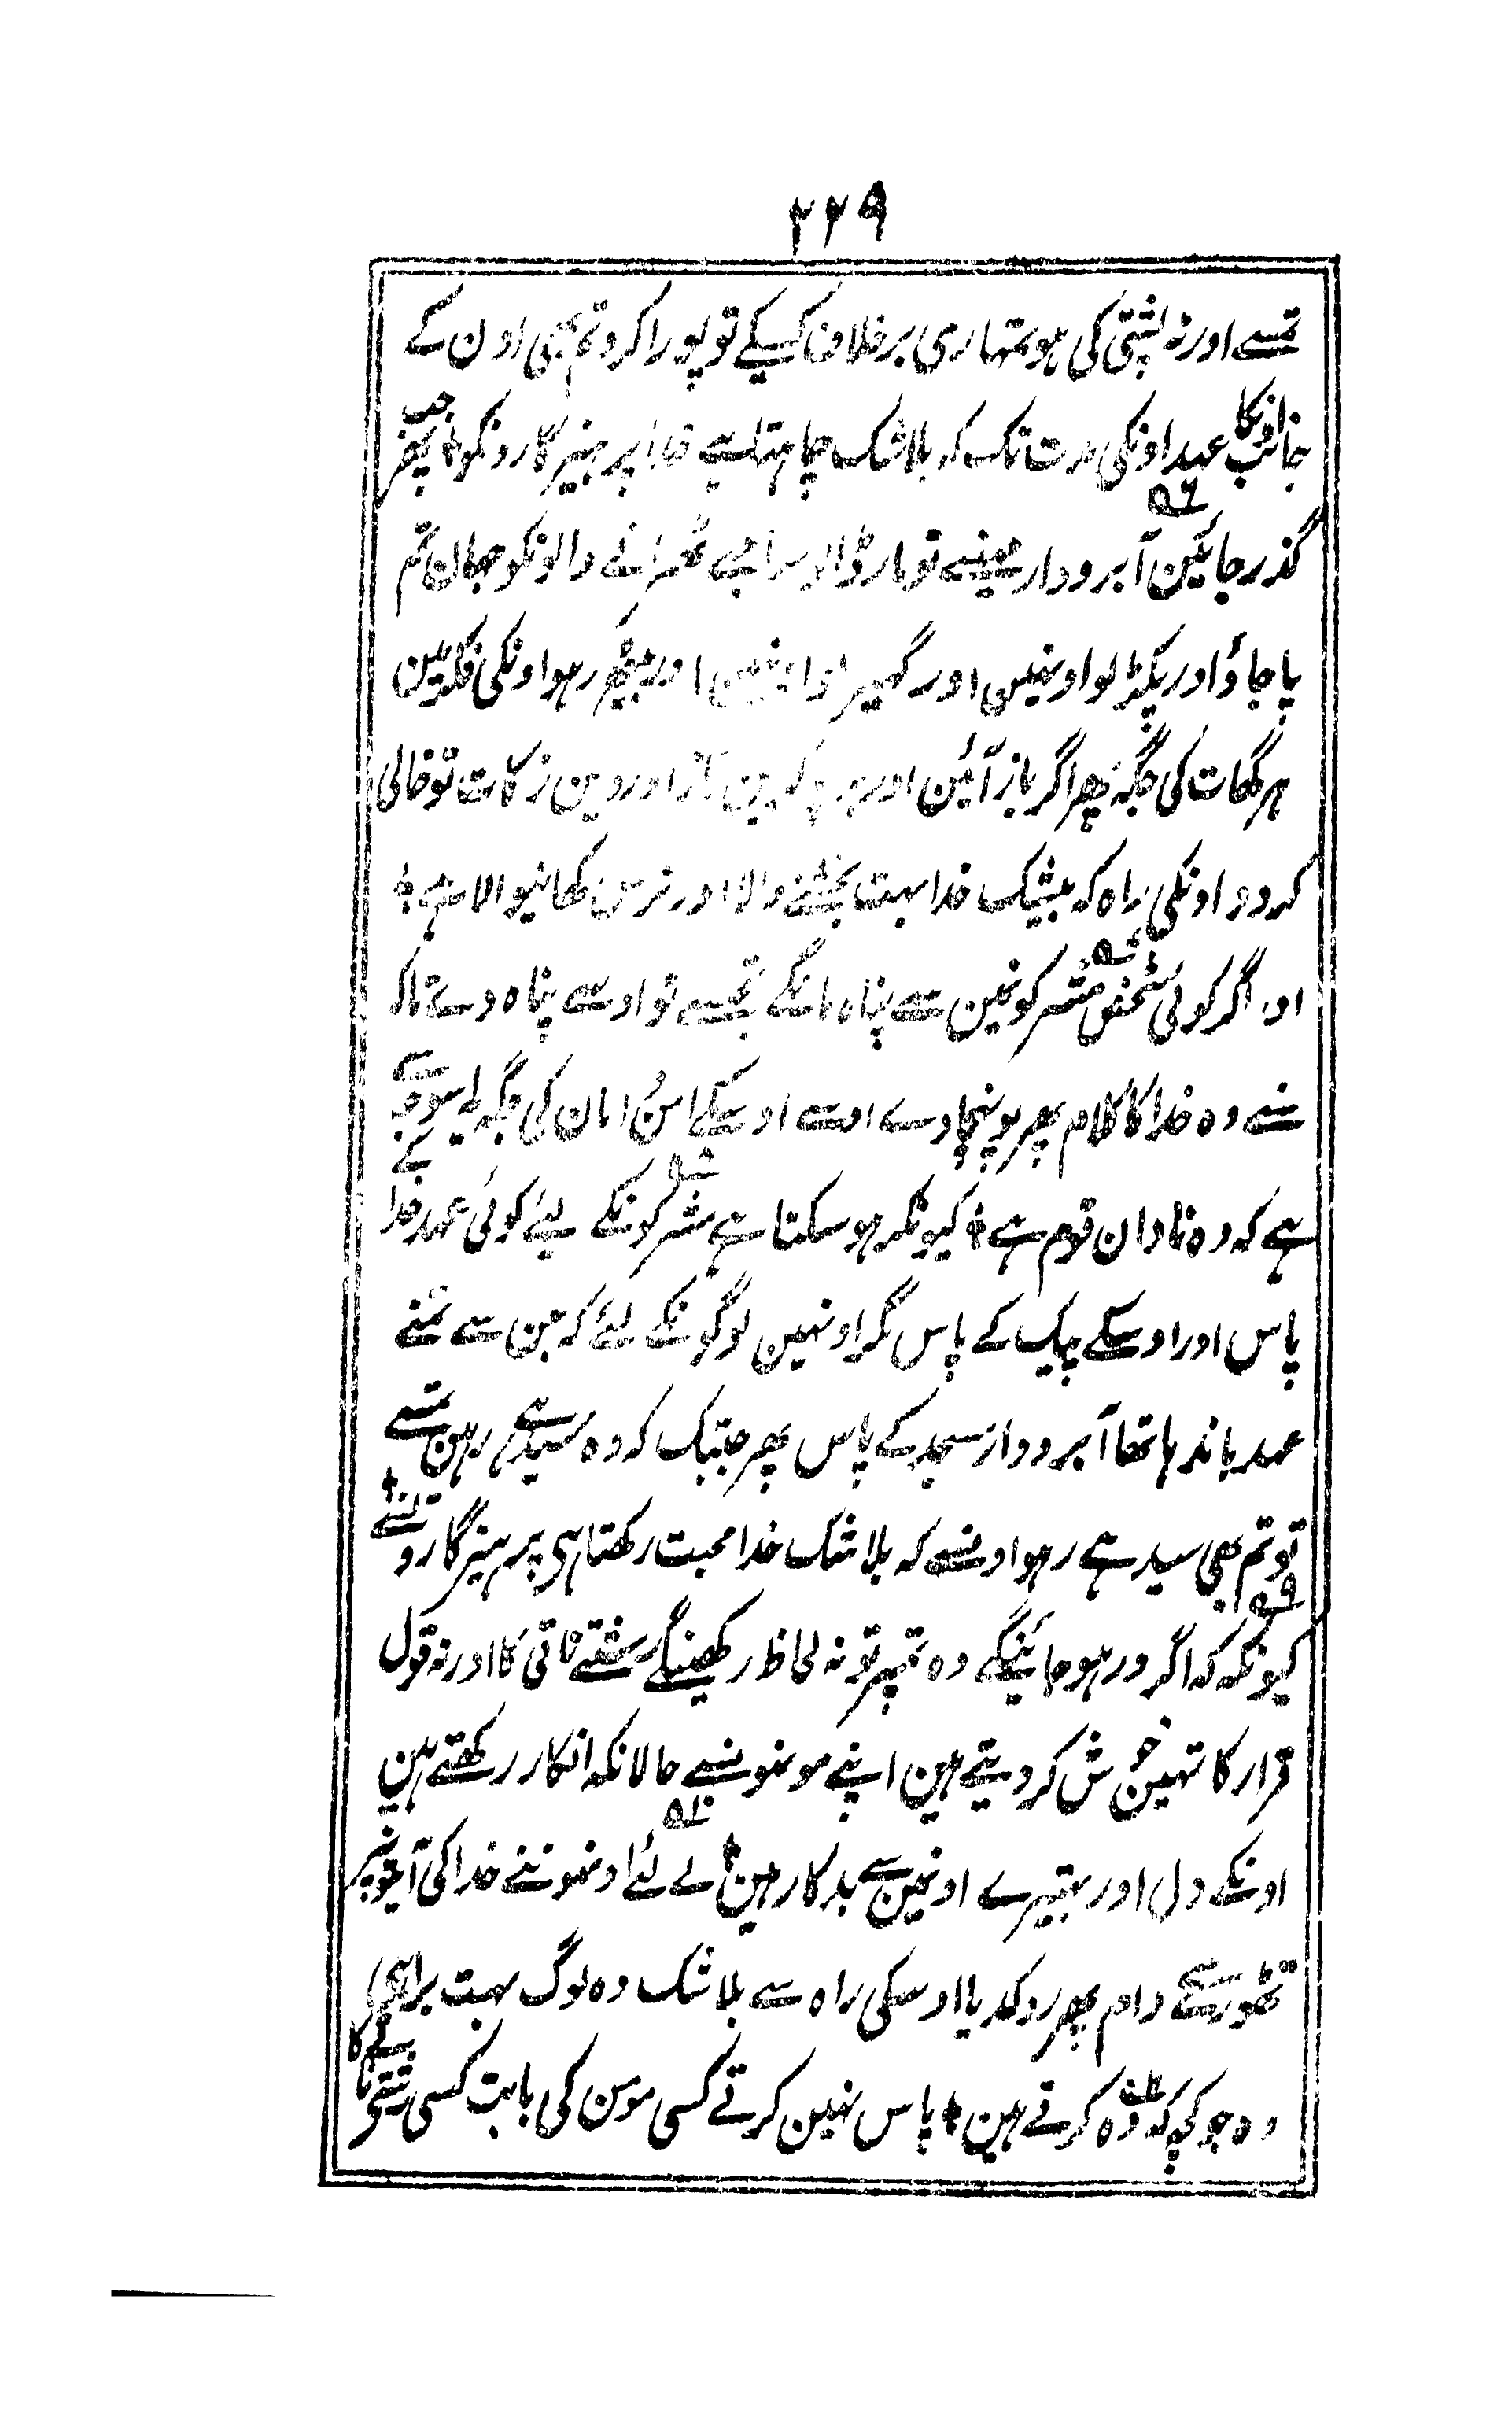 ۲۲۹
تمسے اور نہ پشتی کی ہو تمہاری برخلاف کسیکے تو پورا کرو تم بھی اون کے
جانب اونکا عہد اونکی مدت تک کہ بلاشک چاہتا ہے خدا پرہیزگارونکو ٭ پھر جب
گذر جائین آبرودار مہینے تو مار ڈالو ساجھے ٹھہرانے والونکو جہان تم
پا جاؤ اور پکڑ لو اونہین اور گھیر لو اونہین اور بیٹھے رہو اونکی فکر مین
ہر گھات کی جگہ پھر اگر باز آئین اور اور دین زکات تو خالی
کردو اونکی راہ کہ بیشک خدا بہت بخشنے والا اور ترس کھانیوالا ہے ٭
اور اگر کوئی شخص مشرکونمین سے پناہ مانگے تجھسے تو اوسے پناہ دے تاکہ
سنے وہ خدا کا کلام پھر پہونچا دے اوسے اوسکے امن امان کی جگہ یہ اسوجہ سے
ہے کہ وہ نادان قوم ہے ٭ کیونکر ہو سکتا ہے مشرکونکے لئے کوئی عہد خدا کے
پاس اور اوسکے پیک کے پاس مگر اونہین لوگونکے لئے کہ جن سے تمنے
عہد باندہا تھا آبرودار مسجد کے پاس پھر جبتک کہ وہ سیدہے رہین تمسے
تو تم بھی سیدہے رہو اونسے کہ بلاشک خدا محبت رکھتا ہی پرہیزگارونسے ٭
کیونکہ کہ اگر ور ہو جائینگے وہ تمپر تو نہ لحاظ رکھینگے رشتے ناتی کا اور نہ قول
قرار کا تمہین خوش کر دیتے ہین اپنے مونہونسے حالانکہ انکار رکھتے ہین
اونکے دل اور بہتیرے اونمین سے بدکار ہین ٭ لے لئے اونہونے خدا کی آیتونپر
تھوڑے سے دام پھر روکدیا اوسکی راہ سے بلاشک وہ لوگ بہت برا ہی
وہ جو کچہ کہ وہ کرتے ہین ٭ پاس نہین کرتے کسی مومن کی بابت کسی رشتے ناتے کا